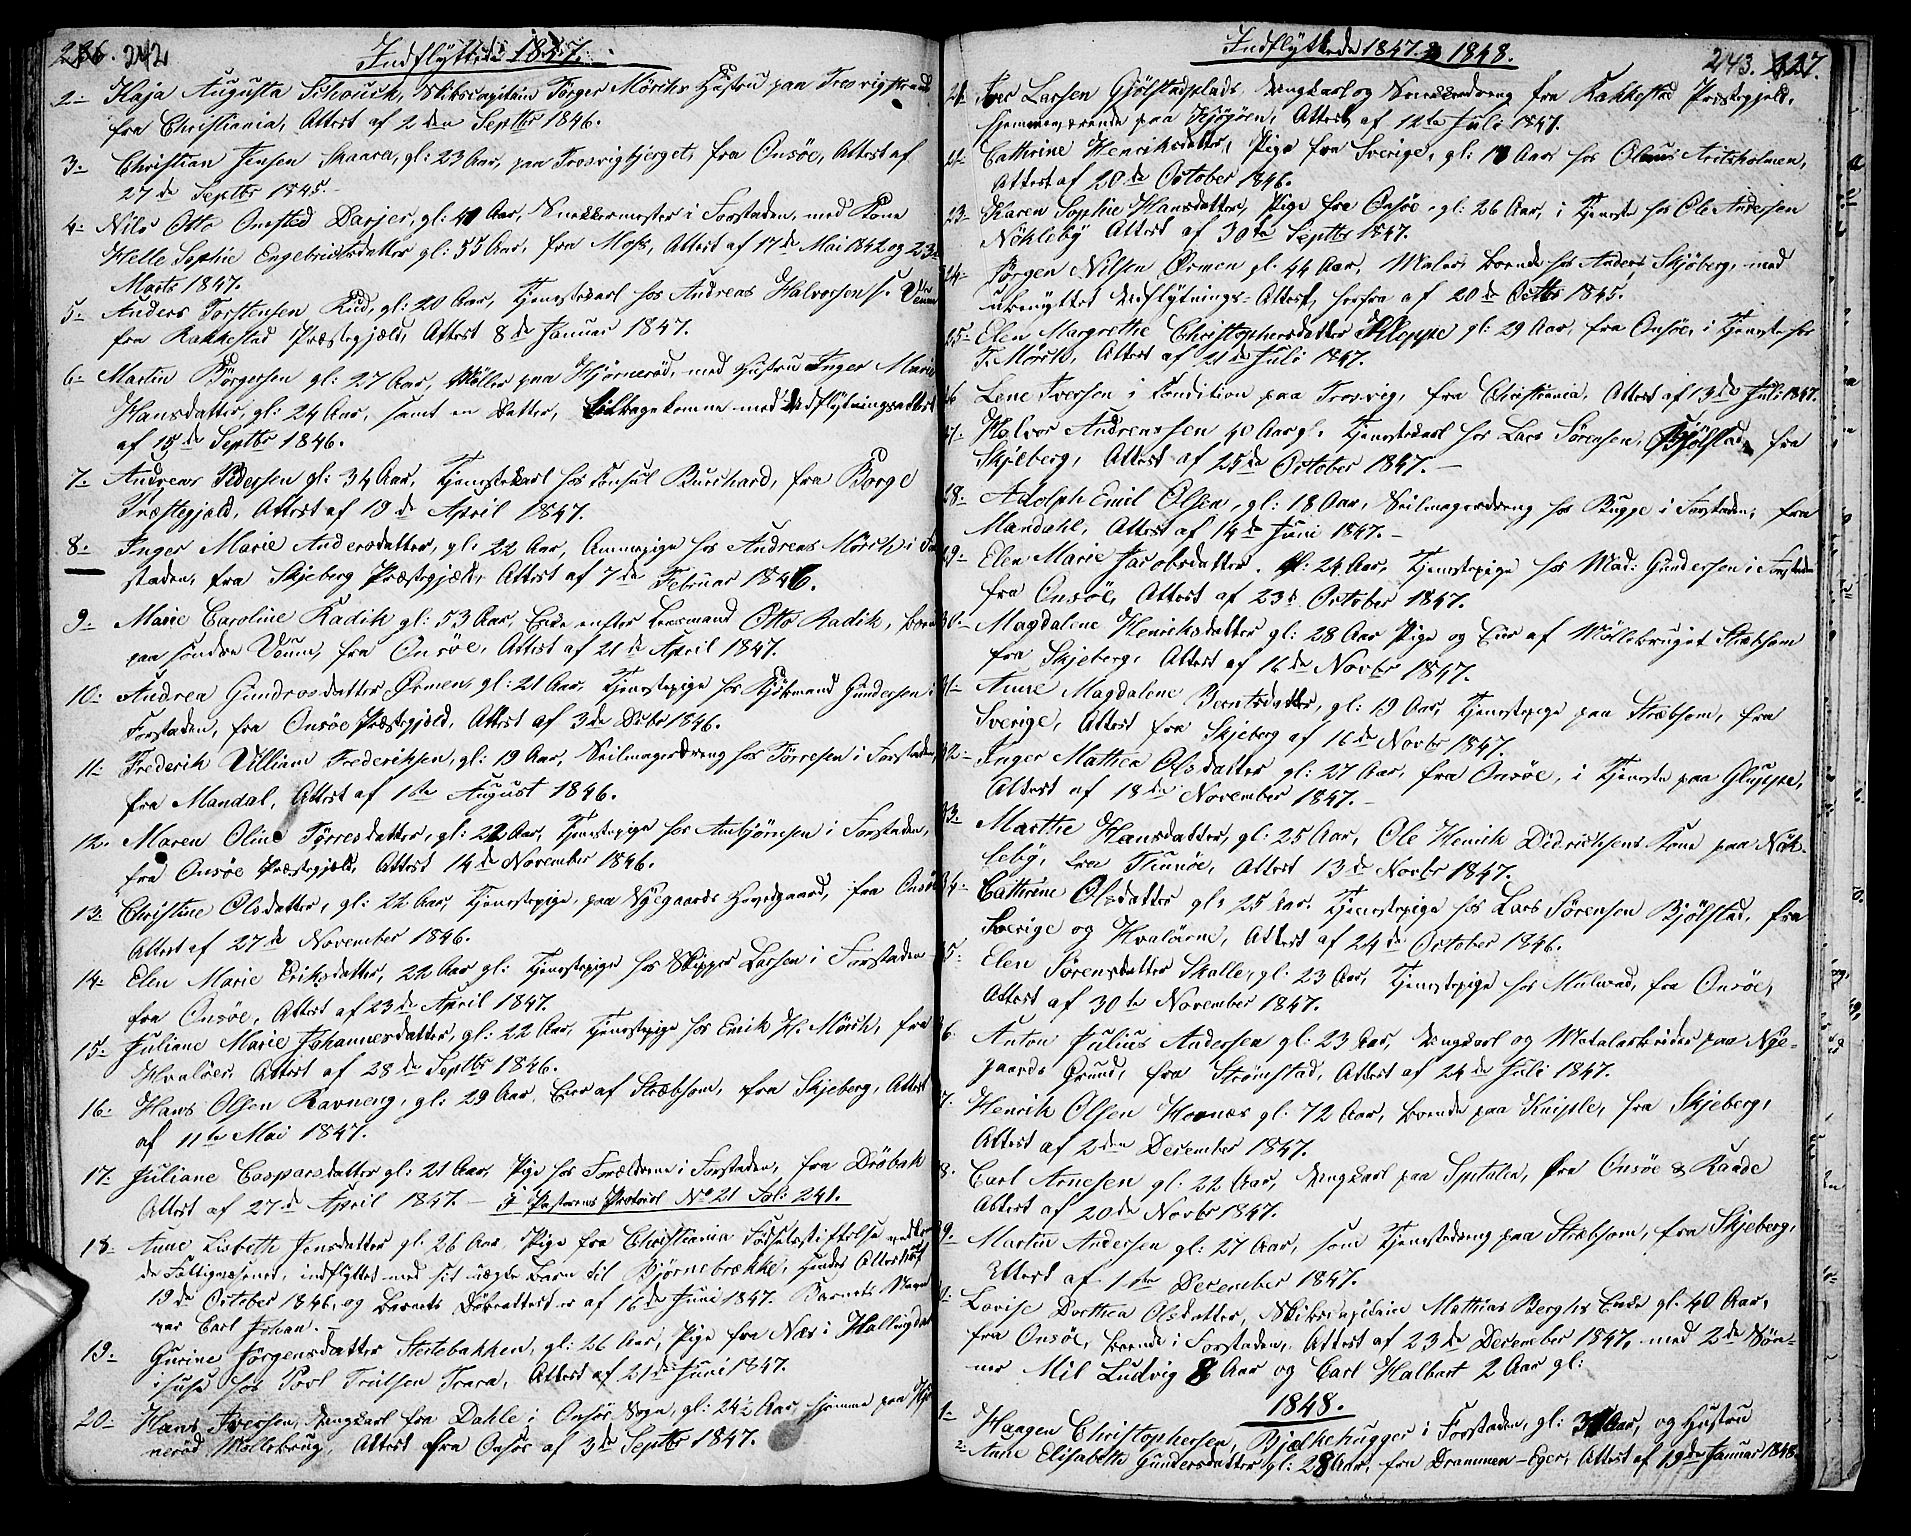 236. 242
Indflyttede 1847.
2- Kaja Augusta Skibscapitain Torger Mörchs Hustru paa Trosvigstrand
fra Christiania, Attest af 2den Septbr 1846.
3- Christian Jensen Skaara, gl: 23 Aar, paa Trosvigbjerget, fra Onsöe, Attest af
27de Septbr 1845.-
4- Nils Otto Onsted Dasjer, gl: 41 Aar, Snekkermester i Forstaden, med Kone
Helle Sophie Engebrictsdatter gl: 55 Aar, fra Moss, Attest af 17de Mai 1842 og 23de
Marts 1847.
5- Anders Torstensen Rud, gl: 20 Aar, Tjenestekarl hos Andreas Halvorsen s. Veum
fra Rakkestad Præstegjæld, Attest 8de Januar 1847.
6- Martin Börgersen gl: 27 Aar, Möller paa Hjörneröd, med Hustru Inger Marie
Hansdatter, gl: 24 Aar, samt en Datter, tilbagekomne med Udflytningsattest
af 15de Septbr 1846.
7- Andreas Pedersen gl: 34 Aar, Tjenestekarl hos Consul Burchard, fra Borge
Præstegjæld, Attest af 19de April 1847.
8- Inger Marie Andersdatter, gl: 22 Aar, Ammepige hos Andreas Mörch i For
staden, fra Skjeberg Præstegjæld, Attest af 7de Februar 1846.
9- Marie Caroline Radik gl: 53 Aar, Enke efter Lensmand Otto Radik, boen
paa söndre Veum, fra Onsöe, Attest af 21de April 1847.
10- Andrea Gundrosdatter Örmen, gl: 21 Aar, Tjenestepige hos Kjöbmand Gundersen i
Forstaden, fra Onsöe Præstegjæld, Attest af 3de Decbr 1846.
11- Frederik Villiam Frederiksen, gl: 19 Aar, Seilmagerdreng hos Törresen i Forstaden,
fra Mandal, Attest af 1ste August 1846.
12. Maren Oline Törresdatter, gl: 22 Aar, Tjenestepige hos Ambjörnsen i Forstaden,
fra Onsöe Præstegjæld, Attest 14de November 1846.
13. Christine Olsdatter, gl: 22 Aar, Tjenestepige, paa Nyegaards Hovedgaard, fra Onsöe
Attest af 27de November 1846.
14- Elen Marie Eriksdatter, 22 Aar gl: Tjenestepige hos Skipper Larsen i Forstaden
fra Onsöe, Attest af 23de April 1847.
15- Juliane Marie Johannesdatter, gl: 22 Aar, Tjenestepige hos Enik H. Mörch, fra
Hvalöer, Attest af 28de Septbr 1846.
16- Hans Olsen Ravneng, gl: 29 Aar, Eier af Stæbsom, fra Skjeberg, Attest
af 11te Mai 1847.
17- Juliane Caspersdatter gl: 21 Aar, Pige hos Forældrene i Forstaden, fra Dröbak
Attest af 27de April 1847.- I Pastorens Protocol No 21 Fol: 241.
18- Anne Lisbeth Jensdatter gl: 26 Aar Pige fra Christiania Födselsstiftelse
de Fattigvæsenet, indflyttet med sit uægte Barn til Björnebrække, hendes Attest
19de October 1846, og Barnets Döbeattest er af 16de Juni 1847. Barnets Navn
var Carl Johan.-
19- Gurine Jörgensdatter Steilebakken, gl: 26 Aar, Pige fra Næs i Hallingdal
i huse hos Povl Trulsen Trara, Attest af 21de Juni 1847.
20- Hans Iversen, Ungkarl fra Dahle i Onsöe Sogn, gl: 24½ Aar, hjemme paa Hjör
neröd Möllebrug, Attest fra Onsöe af 3de Septbr 1847.
Indflyttede 1847. & 1848.
243. 227.
21- Iver Larsen Gjölstadplads, Ungkarl og Snekkerdreng fra Rakkestad Præstegjeld,
hjemmeværende paa Kjöjöen, Attest af 12te Juli 1847.
22- Cathrine Henriksdatter, Pige fra Sverige, gl: 18 Aar hos Olaus Aritsholmen,
Attest af 20de October 1846.
23- Karen Sophie Hansdatter, Pige fra Onsöe, gl: 26 Aar, i Tjeneste hos Ole Andersen
Nökleby Attest af 30te Septbr 1847.
24- Jörgen Nilsen Örmen gl. 44 Aar, Maler, boende hos Anders Skjöberg, med
ubenyttet Udflytnings-Attest, herfra af 20de Octbr 1845.
25- Elen Margrethe Christophersdatter Kleppe gl: 29 Aar, fra Onsöe, i Tjeneste hos
T. Mörch, Attest af 21de Juli 1847.
26 Lene Iversen i Condition paa Trosvig, fra Christiania, Attest af 13de Juli 1847.
27- Halvor Andreassen 40 Aar gl. Tjenestekarl hos Lars Sörensen, Bjölstad, fra
Skjeberg, Attest af 25de October 1847.-
28- Adolph Emil Olsen, gl: 18 Aar, Seilmagerdreng hos Bugge i Forstaden, fra
Mandahl, Attest af 14de Juni 1847.-
29- Elen Marie Jacobsdatter, gl: 24 Aar, Tjenestepige hos Mad: Gundersen i Forstaden
fra Onsöe, Attest af 23de October 1847.
30- Magdalene Henriksdatter gl: 28 Aar Pige og Eier af Möllebruget Stæbsom
fra Skjeberg, Attest af 16de Novbr 1847.
31- Anne Magdalene Berntsdatter, gl: 19 Aar, Tjenestepige paa Stæbsom, fra
Sverige, Attest fra Skjeberg af 16de Novbr 1847.
32- Inger Mathea Olsdatter gl: 27 Aar, fra Onsöe, i Tjeneste paa Gluppe,
Attest af 18de November 1847.-
33- Marthe Hansdatter, gl: 25 Aar, Ole Henrik Didrichsens Kone paa Nök-
leby, fra Thunöe, Attest 13de Novbr 1847.
34- Cathrine Olsdatter gl: 25 Aar. Tjenestepige hos Lars Sörensen Bjölstad, fra
Sverige og Hvalöerne, Attest af 24de October 1846.
35- Elen Sörensdatter Skalle, gl: 23 Aar, Tjenestepige hos Mulvad, fra Onsöe,
Attest af 30te November 1847.
36 Anton Julius Andersen gl: 23 Aar, Ungkarl og Metalarbeider paa Nye-
gaards Grund, fra Strömstad, Attest af 24de Juli 1847.
37. Henrik Olsen Hernæs gl: 72 Aar, boende paa Kniple, fra Skjeberg,
Attest af 2den December 1847.
38. Carl Arnesen gl: 22 Aar, Ungkarl paa Spitalen, fra Onsöe & Raade
Attest af 20de Novbr 1847.
39. Martin Andersen gl: 27 Aar, som Tjenestedreng paa Stæbsom, fra Skjeberg,
Attest af 1ste December 1847.
Lovise Dorthea Olsdatter, Skibscapitain Mathias Berghs Enke gl. 40 Aar,
fra Onsöe, boende i Forstaden, Attest af 23de December 1847, med 2de Sön-
ner Mil Ludvig 8 Aar og Carl Halbart 2 Aar gl:
1848.
1- Haagen Christophersen, Bjælkehugger i Forstaden, gl: 31 Aar, og Hustru
2- Anne Elisabeth Gundersdatter gl: 28 Aar, fra Drammen-Eger, Attest af 19de Januar 1848.